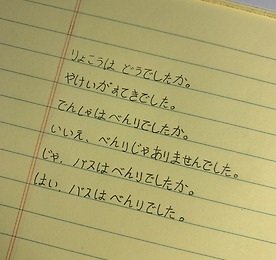 りょこうは どうでしたか。
やけいがすてきでした。
でんしゃはべんりでしたか。
いいえ、べんりじゃありませんでした。
じゃ、バスはべんりでしたか。
はい、バスはべんりでした。